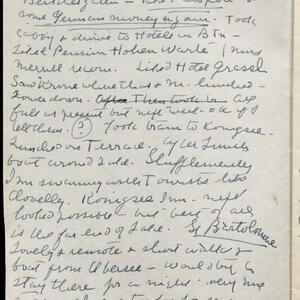 some German money again. Took
cabby & drive to Hotels in Btn -
liked Pension Hohen Warte (Miss
Merrill recom. Liked Hotel Grassl
Saw Krone where that & M. lunched -
down. After Then took tr All
full at present but next week - ok if I
tell them. (?) Took tram to Konigsee.
Lunched on Terrace. after lunch
boat around Lake.
Inn swarming with Tourists like
Clovelly. Konigsee Inn - next
looked possible - but best of all
is the far end of Lake. St Bartolomae
Lovely & remote & short walk &
boat from Obersee - would try to
stay there for a night.